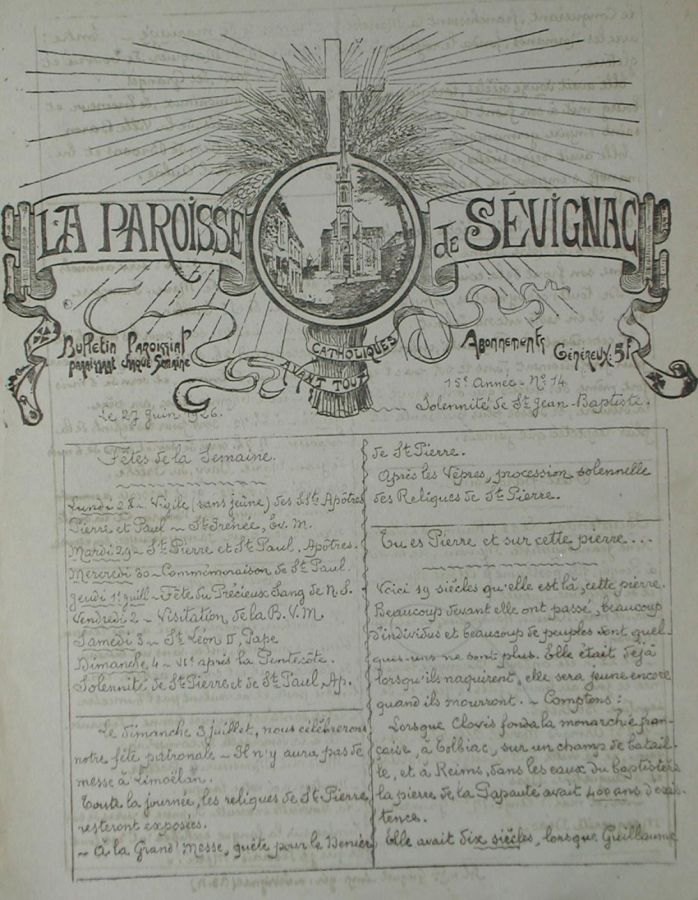 LA PAROISSE de SÉVIGNAC
Bulletin Paroissial
paraissant chaque Semaine
CATHOLIQUES
AVANT TOUT
Abonnements
Généreux: 5f
15e Année - No 14
Le 27 Juin 1926.
Solennité de St Jean-Baptiste.
Fêtes de la Semaine.
Lundi 28 - Vigile (sans jeûne) des SSts Apôtres
Pierre et Paul - St Irénée, Ev. M.
Mardi 29 - St Pierre et St Paul, Apôtres.
Mercredi 30 - Commémoraison de St Paul.
Jeudi 1er Juill - Fête du Précieux Sang de N.S.
Vendredi 2 - Visitation de la B.V.M.
Samedi 3 - St Léon II, Pape
Dimanche 4 - VIe après la Pentecôte.
Solennité de St Pierre et de St Paul, Ap.
Le dimanche 3 juillet, nous célébrerons
notre fête patronale - Il n'y aura pas de
messe à Limoëlan.
Toute la journée, les reliques de St Pierre
resteront exposées.
- A la Grand'Messe, quête pour le Denier
de St Pierre.
Après les Vêpres, procession solennelle
des Reliques de St Pierre.
Tu es Pierre et sur cette pierre...
Voici 19 siècles qu'elle est là, cette pierre.
Beaucoup devant elle ont passé, beaucoup
d'individus et beaucoup de peuples dont quel-
ques-uns ne sont plus. Elle était déjà
lorsqu'ils naquirent, elle sera jeune encore
quand ils mourront. - Comptons:
Lorsque Clovis fonda la monarchie fran-
çaise, à Tolbiac, sur un champ de batail-
le, et à Reims, dans les eaux du baptistère
la pierre de la Papauté avait 400 ans d'exis-
tence.
Elle avait dix siècles, lorsque Guillaume